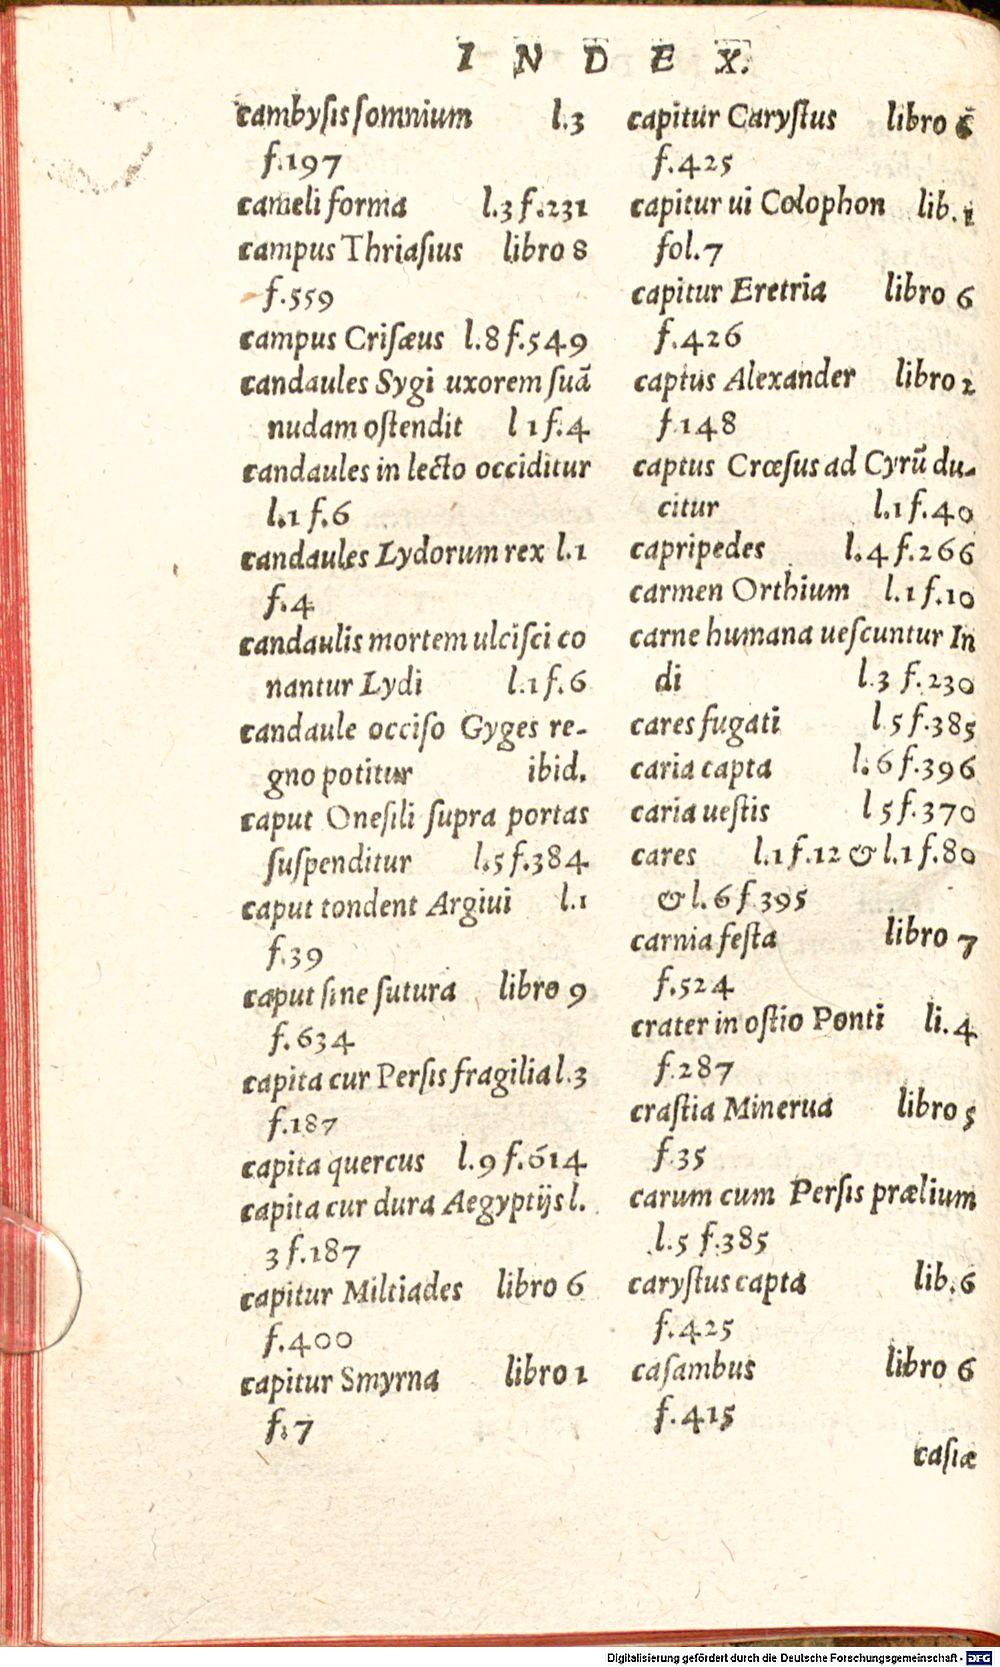 INDEX.
cambyſis ſomnium l.3
f.197
cameli forma l.3 f.231
campus Thriaſius libro 8
f.559
campus Criſæus l.8 f.549
candaules Sygi uxorem ſuã
nudam oſtendit l 1 f.4
candaules in lecto occiditur
l.1 f.6
candaules Lydorum rex l.1
f.4
candaulis mortem ulciſci co
nantur Lydi l.1 f.6
candaule occiſo Gyges re-
gno potitur ibid.
caput Oneſili ſupra portas
ſuſpenditur l.5 f.384
caput tondent Argiui l.1
f.39
caput ſine ſutura libro 9
f.634
capita cur Perſis fragilia l.3
f.187
capita quercus l.9 f.614
capita cur dura Aegyptijs l.
3 f.187
capitur Miltiades libro 6
f.400
capitur Smyrna libro 1
f.7
capitur Caryſtus libro 6
f.425
capitur ui Colophon lib.1
fol.7
capitur Eretria libro 6
f.426
captus Alexander libro 2
f.148
captus Crœſus ad Cyrũ du-
citur l.1 f.40
capripedes l.4 f.266
carmen Orthium l.1 f.10
carne humana ueſcuntur In
di l.3 f.230
cares fugati l.5 f.385
caria capta l.6 f.396
caria ueſtis l 5 f.370
cares l.1 f.12 & l.1 f.80
& l.6 f.395
carnia feſta libro 7
f.524
crater in oſtio Ponti li.4
f.287
craſtia Minerua libro 5
f.35
carum cum Perſis prælium
l.5 f.385
caryſtus capta lib.6
f.425
caſambus libro 6
f.415
caſiæ
Digitalisierung gefördert durch die Deutsche Forschungsgemeinschaft - DFG